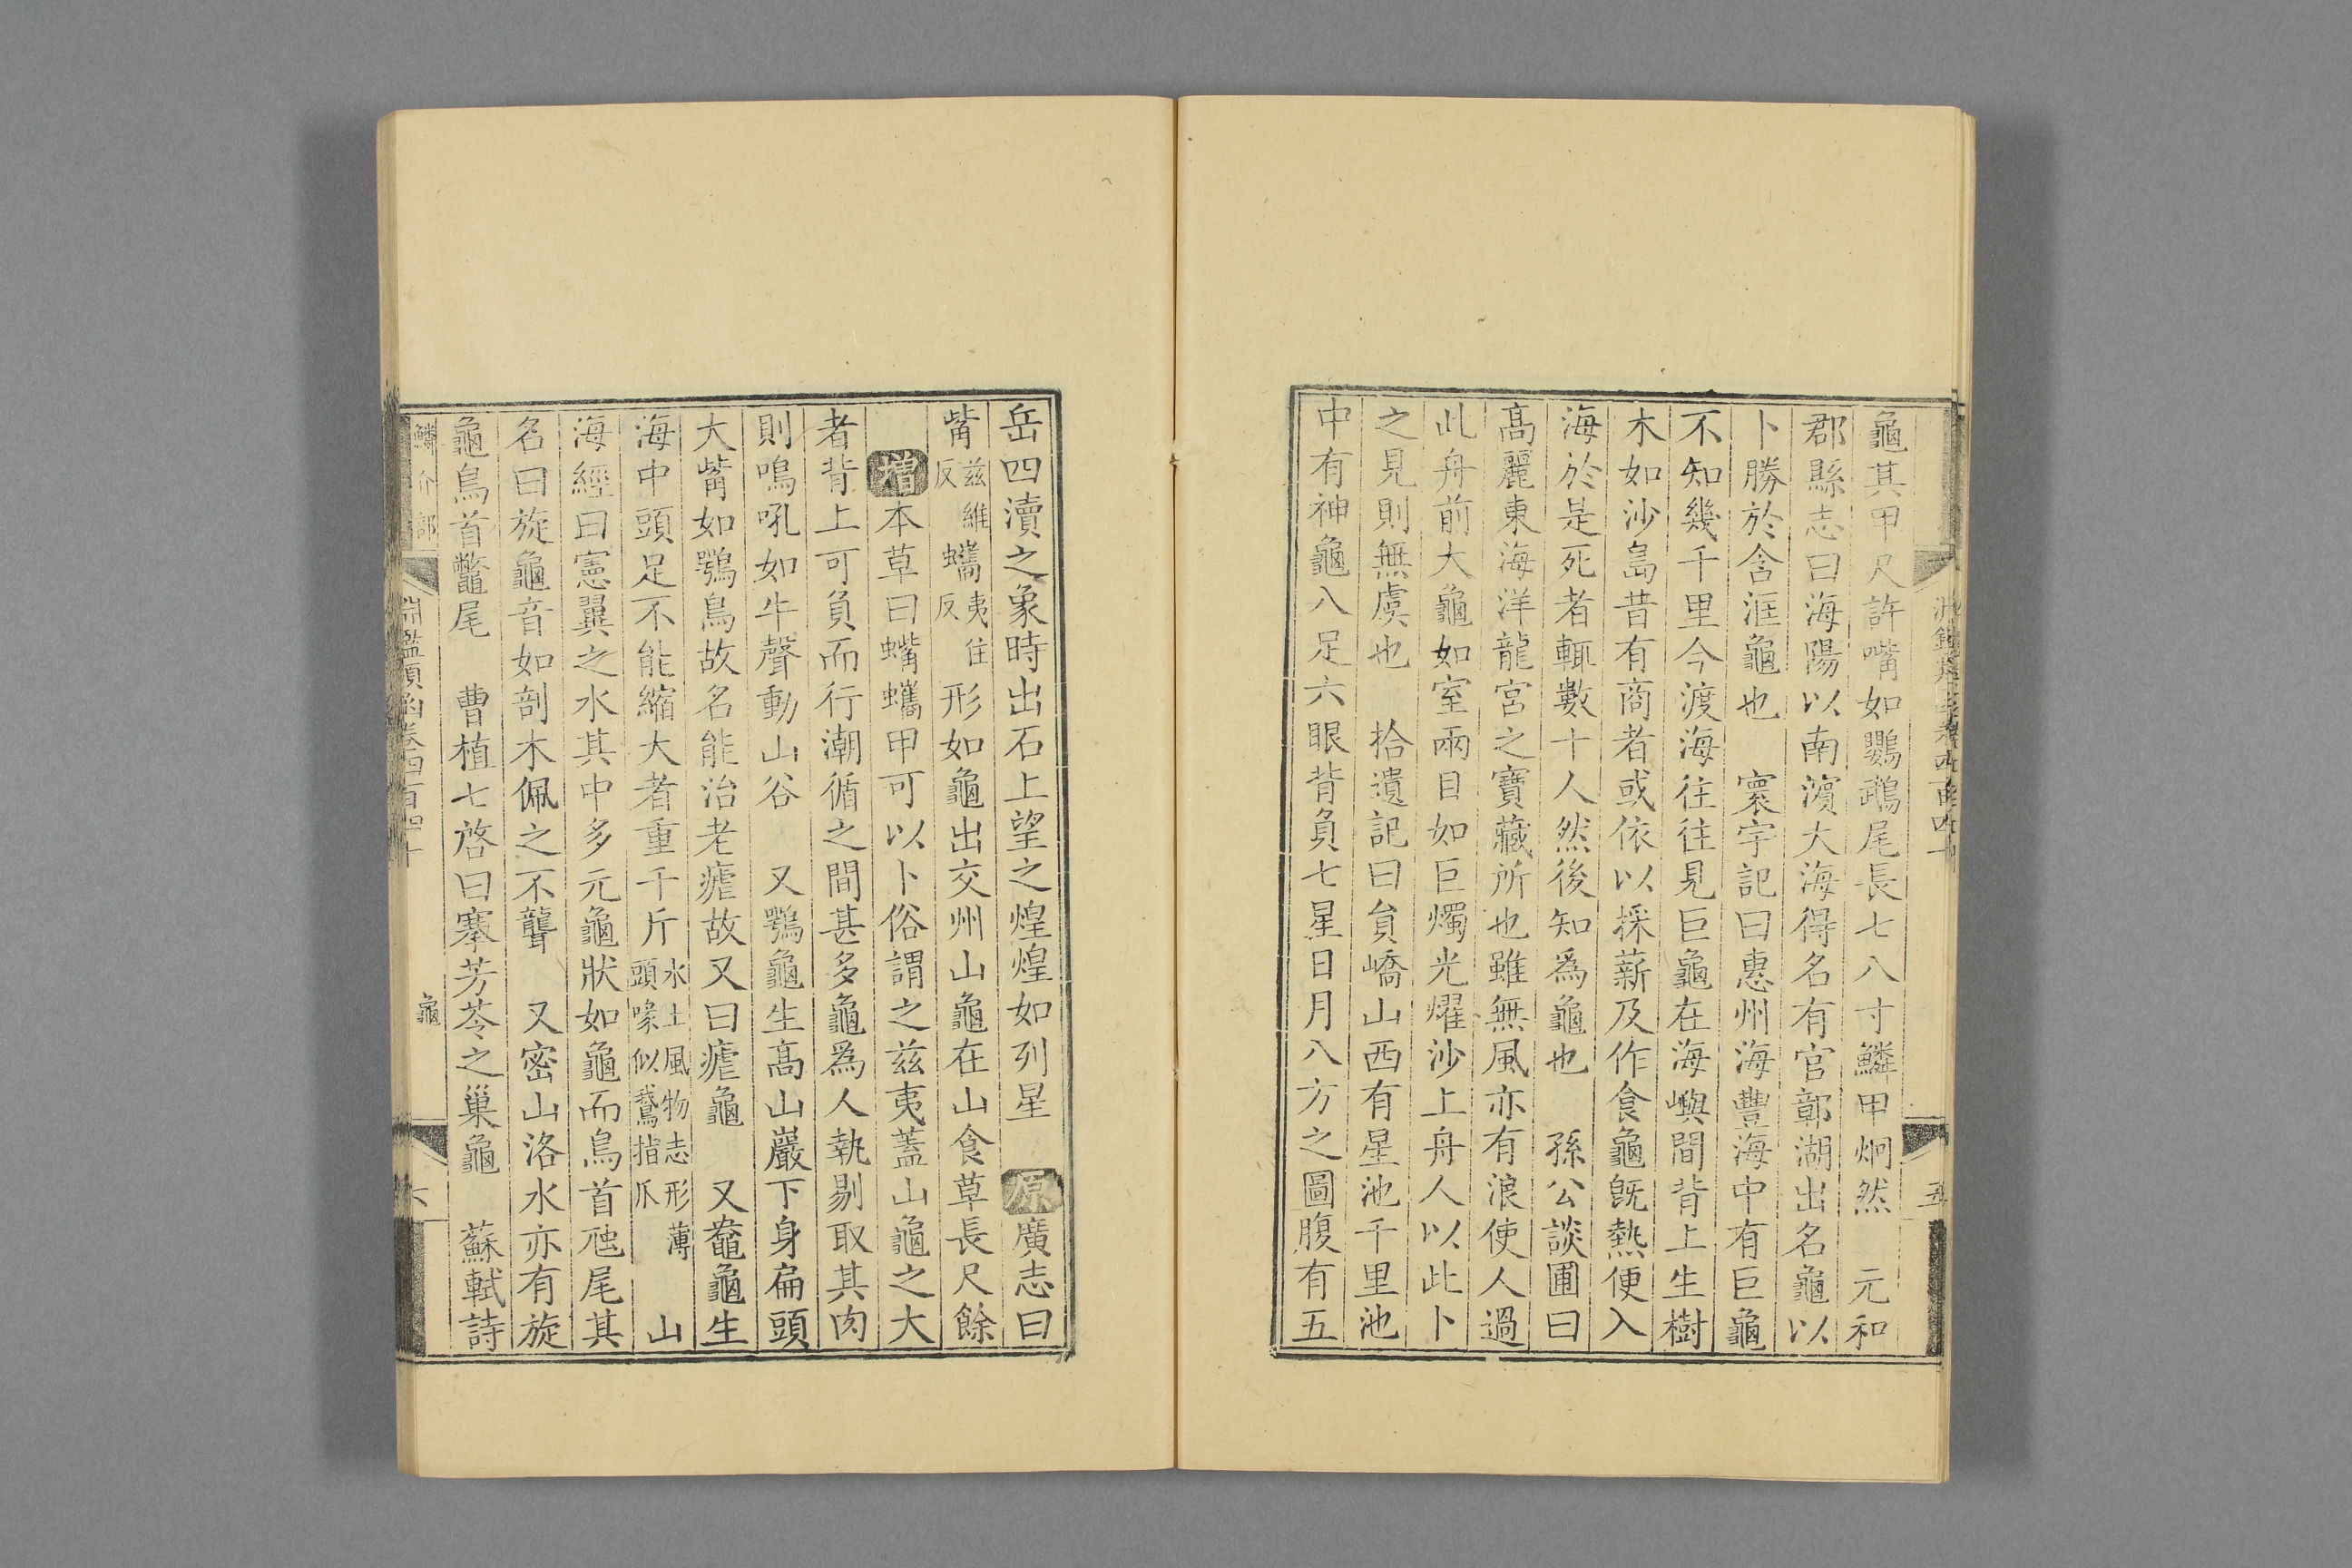 龜其甲尺許嘴如鸚鵡尾長七八寸鱗甲炯然　元和
郡縣志曰海陽以南濱大海得名有官鄣湖出名龜以
卜勝於含洭龜也　寰宇記曰惠州海豐海中有巨龜
不知幾千里今渡海往往見巨龜在海嶼間背上生樹
木如沙島昔有商者或依以採薪及作食龜旣熱便入
海於是死者輒數十人然後知爲龜也　孫公談圃曰
高麗東海海洋龍宮之寶藏所也雖無風亦有浪使人過
此舟前大龜如室兩目如巨燭光燿沙上舟人以此卜
之見則無虞也　拾遺記曰負嶠山西有星池千里池
中有神龜八足六眼背負七星日月八方之圖腹有五
五
岳四瀆之象時出石上望之煌煌如列星　原廣志曰
觜兹維反蠵夷佳反形如龜出交州山龜在山食草長尺餘
增本草曰蠵蠵甲可以卜俗謂之兹夷蓋山龜之大
者背上可負而行潮循之間甚多龜爲人執剔取其肉
則鳴吼如牛聲動山谷　又鶚龜生高山巖下身扁頭
大觜如鶚鳥故名能治老瘧故又曰瘧龜　又鼇龜生
海中頭足不能縮大者重千斤水土風物志形薄頭喙似鵞指爪　山
海經曰憲翼之水其中多元龜狀如龜而鳥首虺尾其
名曰旋龜音如剖木佩之不聾　又密山洛水亦有旋
龜鳥首鼈尾　曹植七啓曰搴芳苓之巢龜　蘇軾詩
鱗介部
淵鑑類函卷四百四十
龜
六